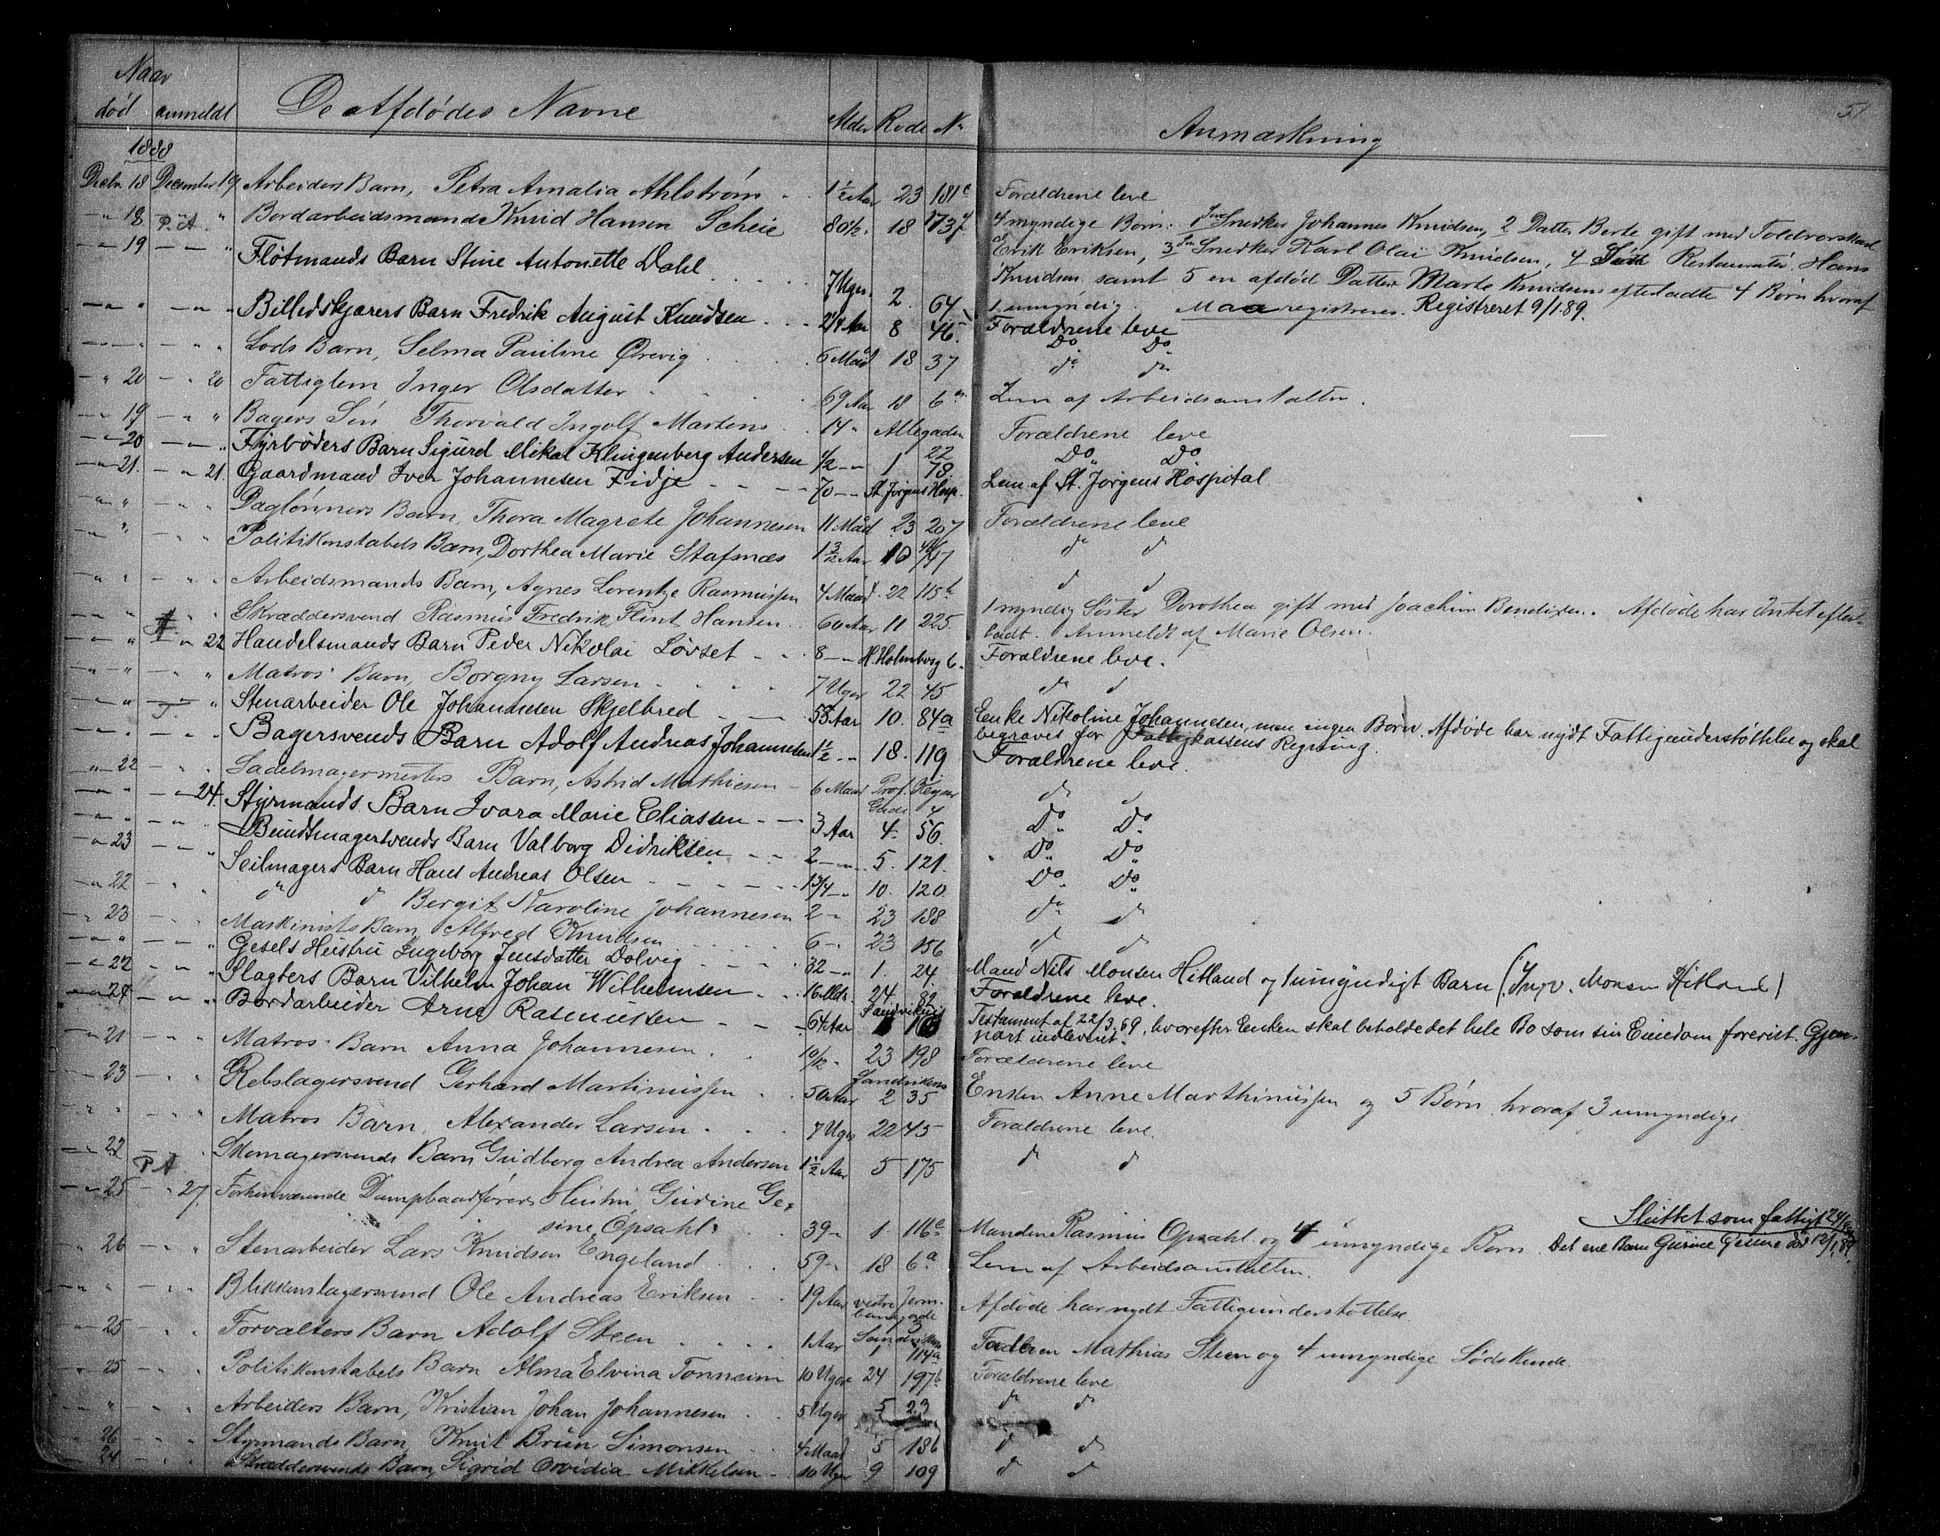 Naar
død anmeldt De Afdødes Navne Alder Rode No Anmærkning 51
1888
Decbr. 18 December 19. Arbeiders Barn, Petra Amalia Ahlstrøm 1½ Aar 23 181c Forældrene leve
18 P.A. Bordarbeidsmand Knud Hansen Scheie 80½ 18 4 myndige Børn: 1 Snedker Johannes Knudsen, 2 Datter Berte gift med
19 Fløtmands Barn Stine Antonette Dahl 7 Uger. 2. 64 Erik Eriksen, 3 Snedker Karl Olai Knudsen, 4 Restauratør Hans
Knudsen samt 5 en afdød Datter Marte Knudsens efterladte 4 Børn hvoraf
1 umyndig. Maa registreres. Registreret 9/1 89.
Billedskjærers Barn Fredrik August Knudsen 2¼ Aar 8 46. Forældrene leve
Lods Barn, Selma Pauline Ørevig 6 Maad 18 37 Do Do
20 20 Fattiglem Inger Olsdatter 69 Aar 18 6a Lem af Arbeidsanstalten.
19 Bagers Søn Thorvald Ingolf Martens 14 Allegaden 22 Forældrene leve
20 Fyrbøders Barn Sigurd Mikal Klingenberg Andersen ½ 1 78 Do Do
21. 21. Gaardmand Iver Johannesen Fidje 70 St. Jørgens Hosp. Lem af St. Jørgens Hospital.
Daglønners Barn, Thora Magrete Johannesen 11 Maad 23 207 Forældrene leve
Politikonstabels Barn, Dorthea Marie Stafsnæs 10 do do
Arbeidsmands Barn, Agnes Lorentze Rasmussen 4 Maad 22 115b do do
Skræddersvend Rasmus Fredrik Flint Hansen 60 Aar 11 225. 1 myndig Søster Dorothea gift med Joachim Bendixen. Afdøde har Intet efter-
ladt. Anmeldt af Marie Olsen.
22 Handelsmands Barn Peder Nikolai Løvset 8 H. Holmborg 6. Forældrene leve.
Matros' Barn, Borgny Larsen 7 Uger 22 45 do do
Stenarbeider Ole Johannesen Skjelbred 55 Aar 10. 84a Enke Nikoline Johannesen, men ingen Børn. Afdøde har nydt Fattigunderstøttelse og skal
begraves for Fattigkassens Regning.
Bagersvends Barn Adolf Andreas Johannesen 1½ 18. 119 Forældrene leve.
22 Sadelmagermesters Barn, Astrid Mathiesen 6 Maad Prof. Keyser Gade 4 do do
24. Styrmands Barn Ivara Marie Eliassen 3 Aar 4. 56. Do Do
Bundtmagersvends Barn Valborg Didriksen 2 5. 121. Do Do
23 Seilmagers Barn Hans Andreas Olsen 1¾ 10. 120. Do Do
22 d Bergit Naroline Johannesen 2 23 188 do do
23 Maskinists Barn, Alfred Knudsen 6 23 156 do do
Gesels Hustru Ingeborg Jensdatter Dolvig 32 1. 24. Mand Nils Monsen Hitland og 1 umyndigt Barn (Ingv. Monsen Hitland)
22 Slagters Barn Vilhelm Johan Wilhelmsen 16 Mdr. 24. 82 Forældrene leve.
24 Bordarbeider Arne Rasmussen 61½ Aar Sandviksv. Testament af 22/3 69, hvorefter Enken skal beholde det hele Bo som sin Eiendom forevist. Gjen-
part indleveret.
21 Matros' Barn Anna Johannesen 10/12 23 198 Forældrene leve
23 Rebslagersvend Gerhard Martinussen 50 Aar Sandviken 2 35 Enken Anne Marthinussen og 5 Børn, hvoraf 3 umyndige.
Matros Barn, Alexander Larsen 7 Uger 22 45 Forældrene leve.
22 P.A. Skomagersvends Barn Gudborg Andrea Andersen 1½ Aar 5 175 do do
25 27. Forhenværende Dampbaadførers Hustru Gurine Ge-
sine Opsahl 39 1. 116c Manden Rasmus Opsahl og 4 umyndige Børn. Det ene Barn Gurine Gesine død 12/1 89.
Sluttet som fattigt 24/
26 Stenarbeider Lars Knudsen Engeland 59 18 6a Lem af Arbeidsanstalten.
Blikkenslagersvend Ole Andreas Eriksen 19 Aar vestre Jern-banegade 3 Afdøde har nydt Fattigunderstøttelse
25 Forvalters Barn Adolf Steen 1 Aar Sandviken 1 114a Faderen Mathias Steen og 4 umyndige Sødskende.
25 Politikonstabels Barn Alma Elvina Tonheim 10 Uger 24 197b Forældrene leve
Arbeiders Barn, Kristian Johan Johannesen 5 Uger 5 23 do do
26 Styrmands Barn, Knut Brun Simonsen 4 Maad 5 186 do do
24 Skræddersvends Barn, Sigrid Orvidia Mikkelsen 10 Uger 9 109 do do